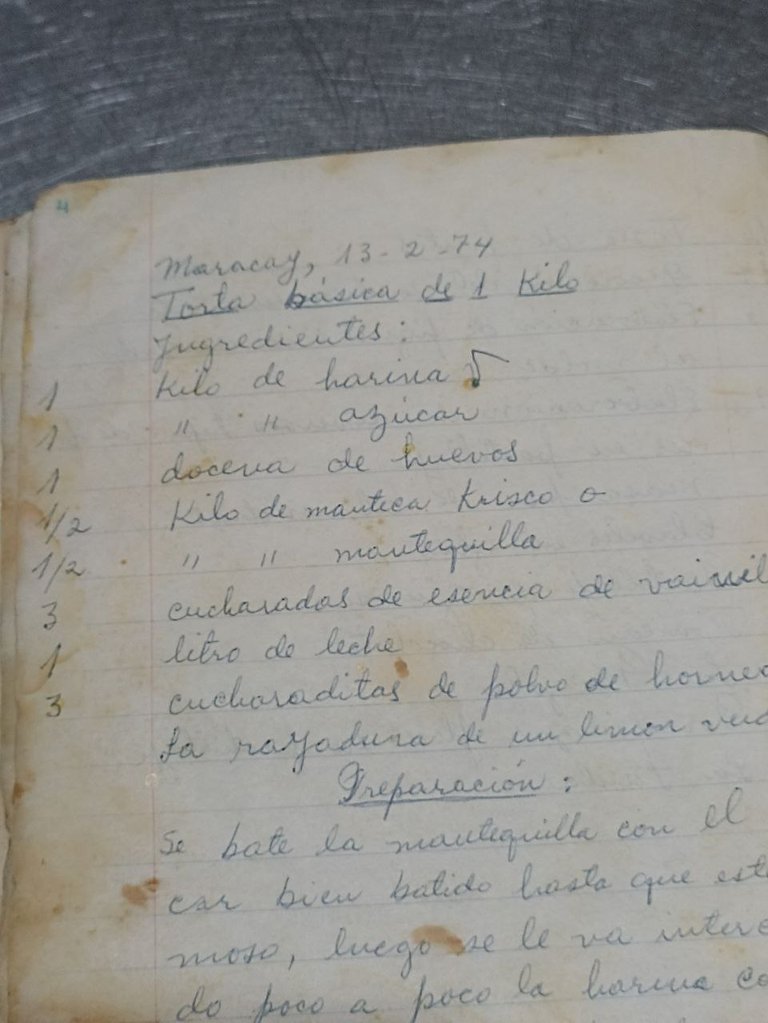 4
Maracay, 13-2-74
Torta básica de 1 Kilo
Ingredientes:
1 Kilo de harina
1 " " azúcar
1 docena de huevos
1/2 Kilo de manteca Krisco o
1/2 " " mantequilla
3 cucharadas de esencia de vainil
1 litro de leche
3 cucharaditas de polvo de horne
La rayadura de un limon
Preparación:
Se bate la mantequilla con el
car bien batido hasta que est
moso, luego se le va interc
do poco a poco la harina co